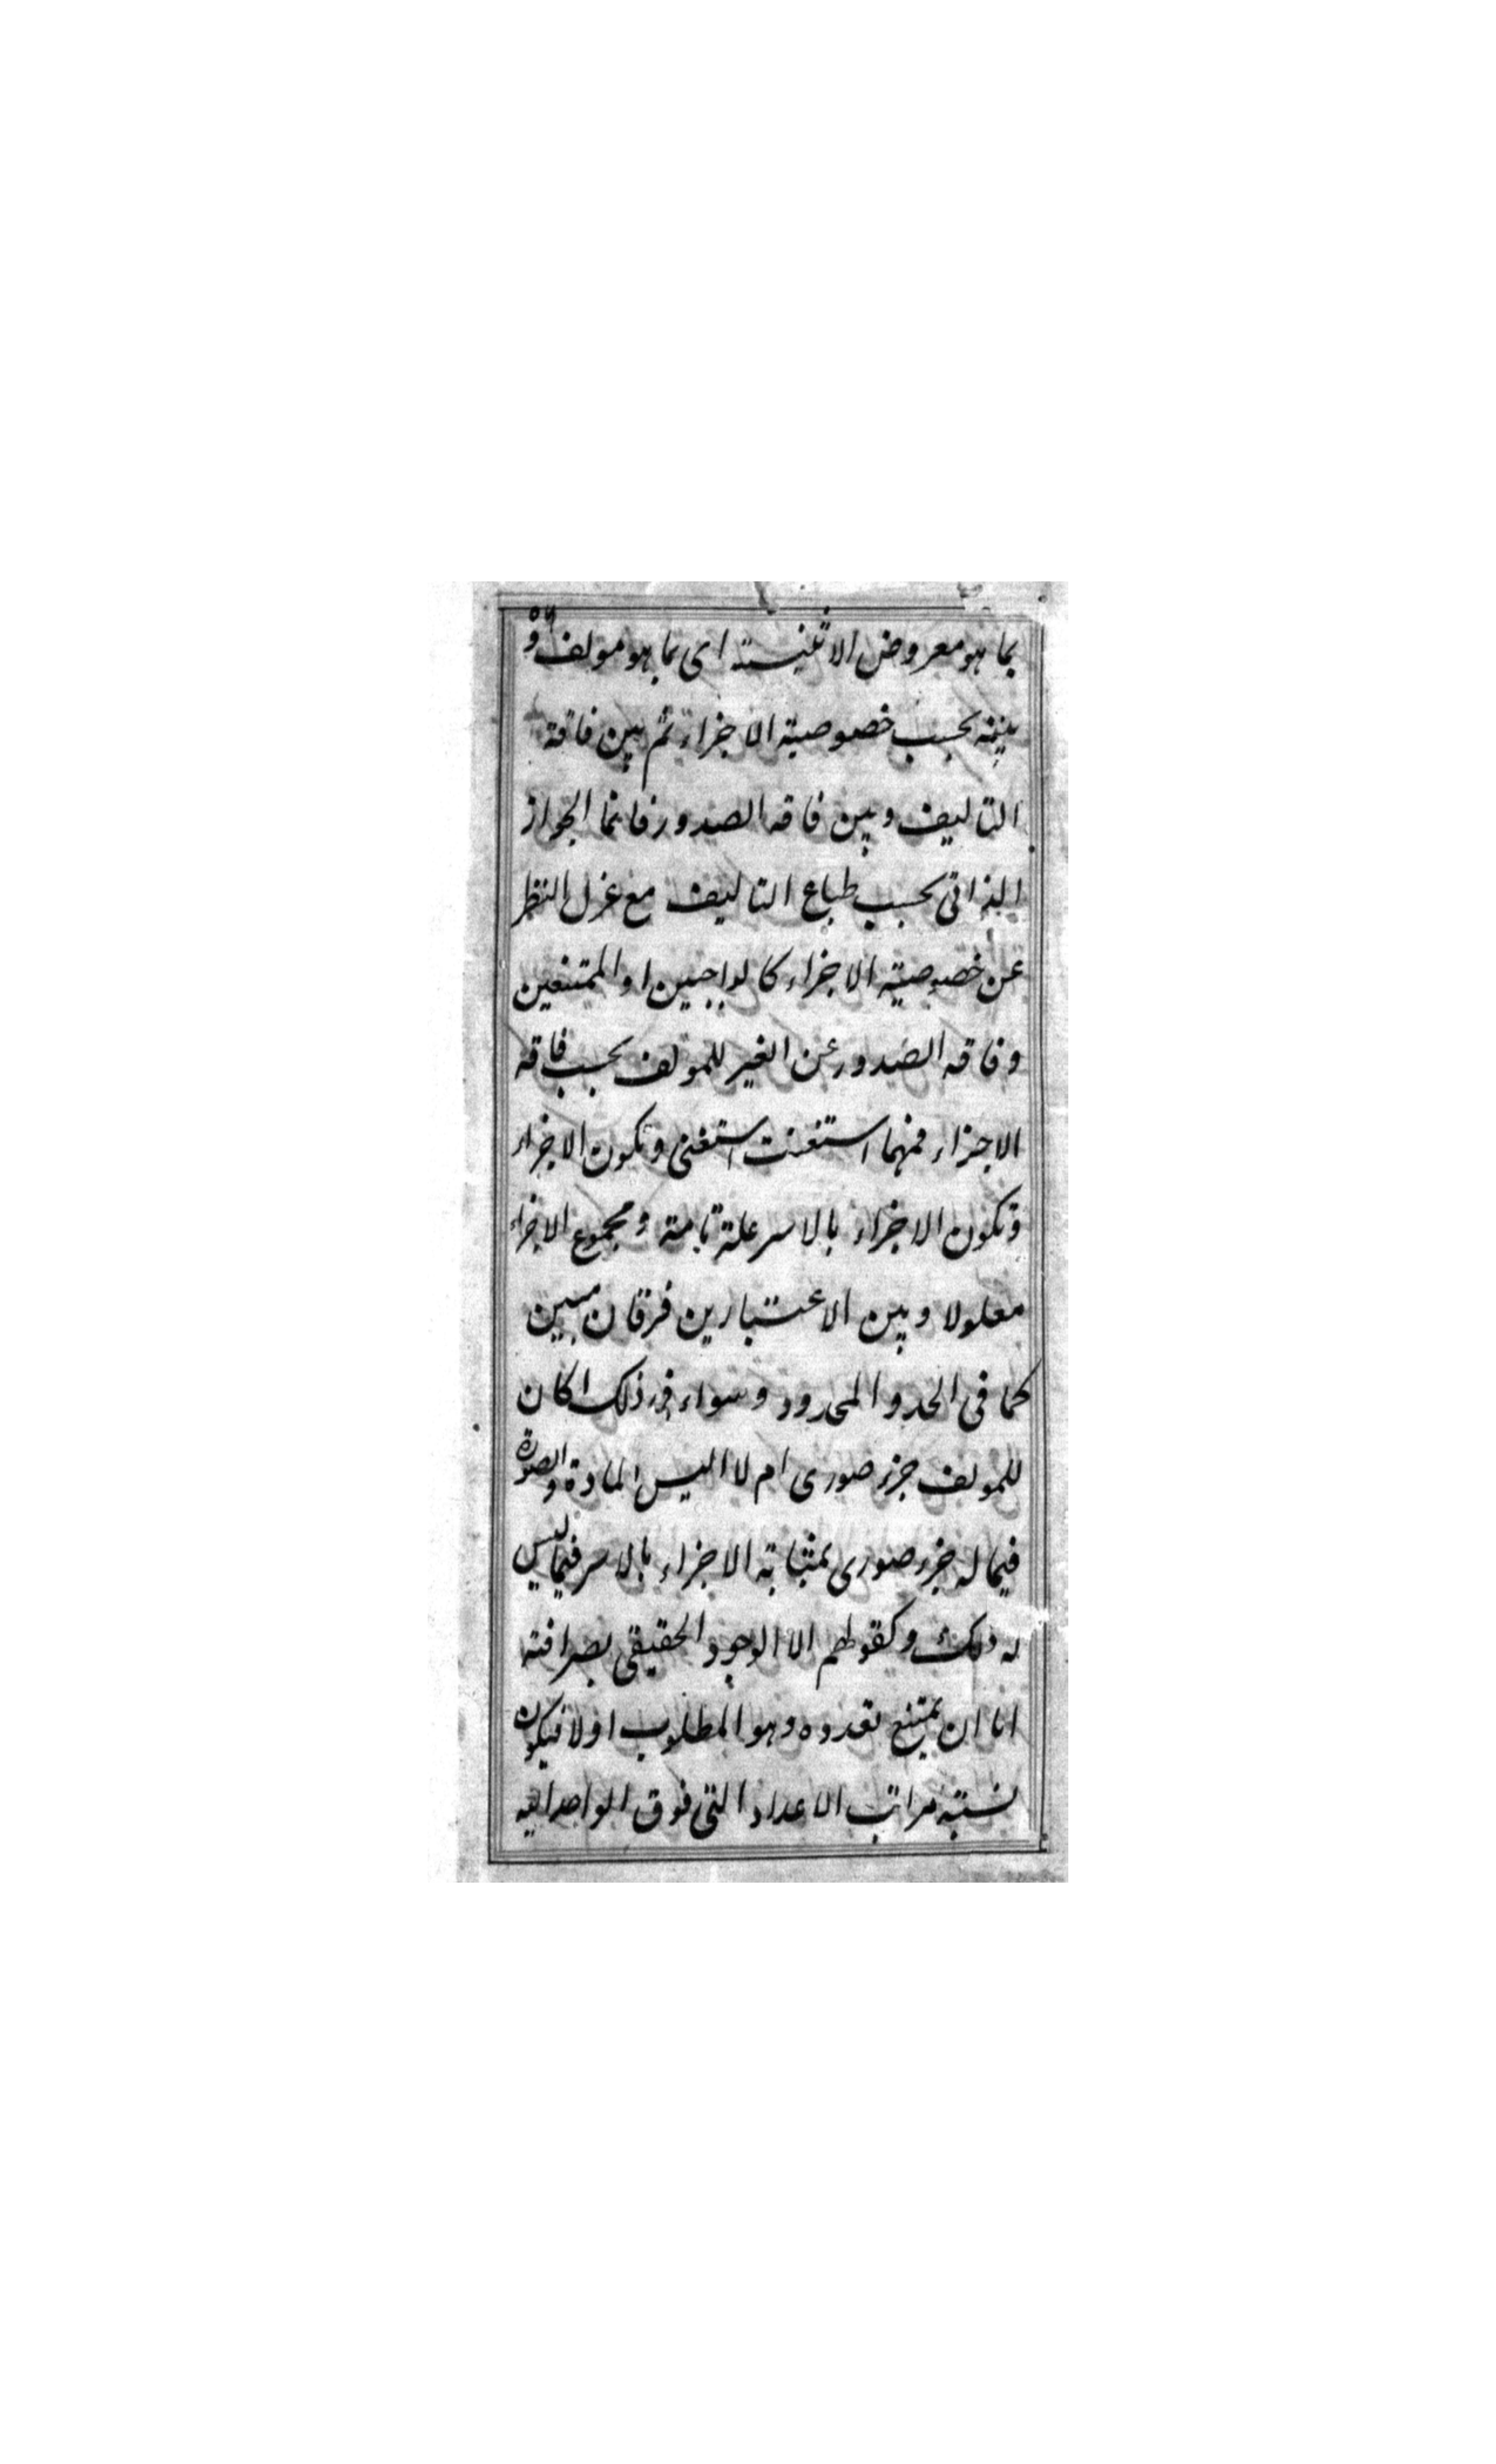 بما هو معروض الاثنينيته اى بما هو مولف
بينه بحسب خصوصية الاجزاء ثم بين فاقة
التاليف وبين فاقه الصدور فانما الجواز
الذاتى بحسب طباع التاليف مع عزل النظر
عن خصوصية الاجزاء كالواجبين او الممتنعين
وفاقه الصدور عن الغير للمولف بحسب فاقه
الاجزاء فمهما استغنت استغنى وتكون الاجزاء
وتكون الاجزاء بالاسر علة تامة ومجموع الاجزاء
معلولا وبين الاعتبارين فرقان مبين
كما فى الحد والمحدود وسواء فى ذلك اكان
للمولف جزء صورى ام لا اليس المادة والصورة
فيما له جزء صورى بمثابة الاجزاء بالاسر فيما ليس
له ذلك وكقولهم الا الوجود الحقيقى بصرافته
اما ان يمتنع تعدده وهو المطلوب او لا فيكون
نسبة مراتب الاعداد التى فوق الواحد اليه